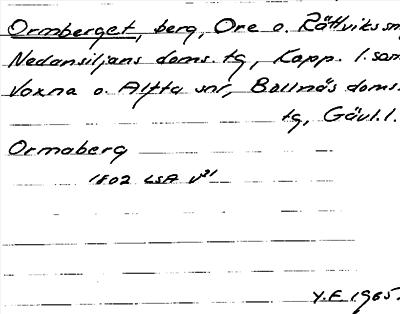 Ormberget, berg, Ore o. Rättviks snr
Nedansiljans doms. tg, Kopp. l. samt
Voxna o. Alfta snr, Bollnäs doms.
tg, Gävl. l.
Ormaberg
1802 LSA V21
Y.E 1965.